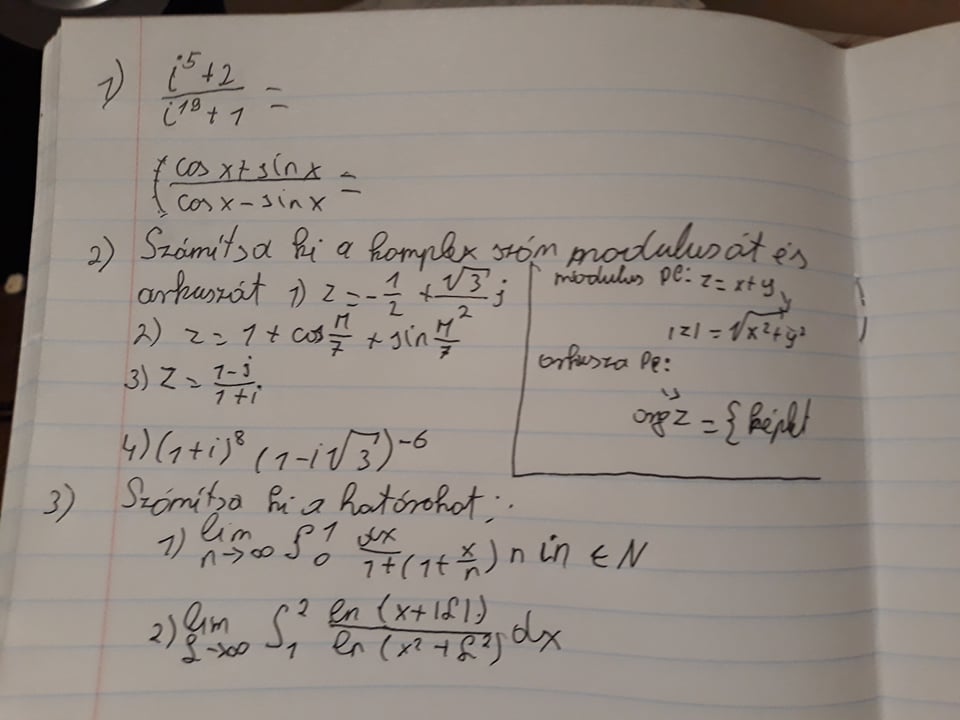 1) (i^5+2)/(i^19+1) =
{ (cos x+sin x)/(cos x-sin x) =
2) Számítsa ki a komplex szám modulusát és
arkuszát 1) z = -1/2 + √3/2 i
2) z = 1 + cos π/7 + sin π/7
3) z = (1-i)/(1+i)
4) (1+i)^8 (1-i√3)^-6
modulus pe: z = x+y
|z| = √(x²+y²)
arkusza pe:
arg z = {képlet
3) Számítsa ki a határokat:
1) lim n→∞ ∫_0^1 dx/(1+(1+x/n)) n in ∈ N
2) lim £→∞ ∫_1^2 ln (x+|£|)/ln (x²+£²) dx